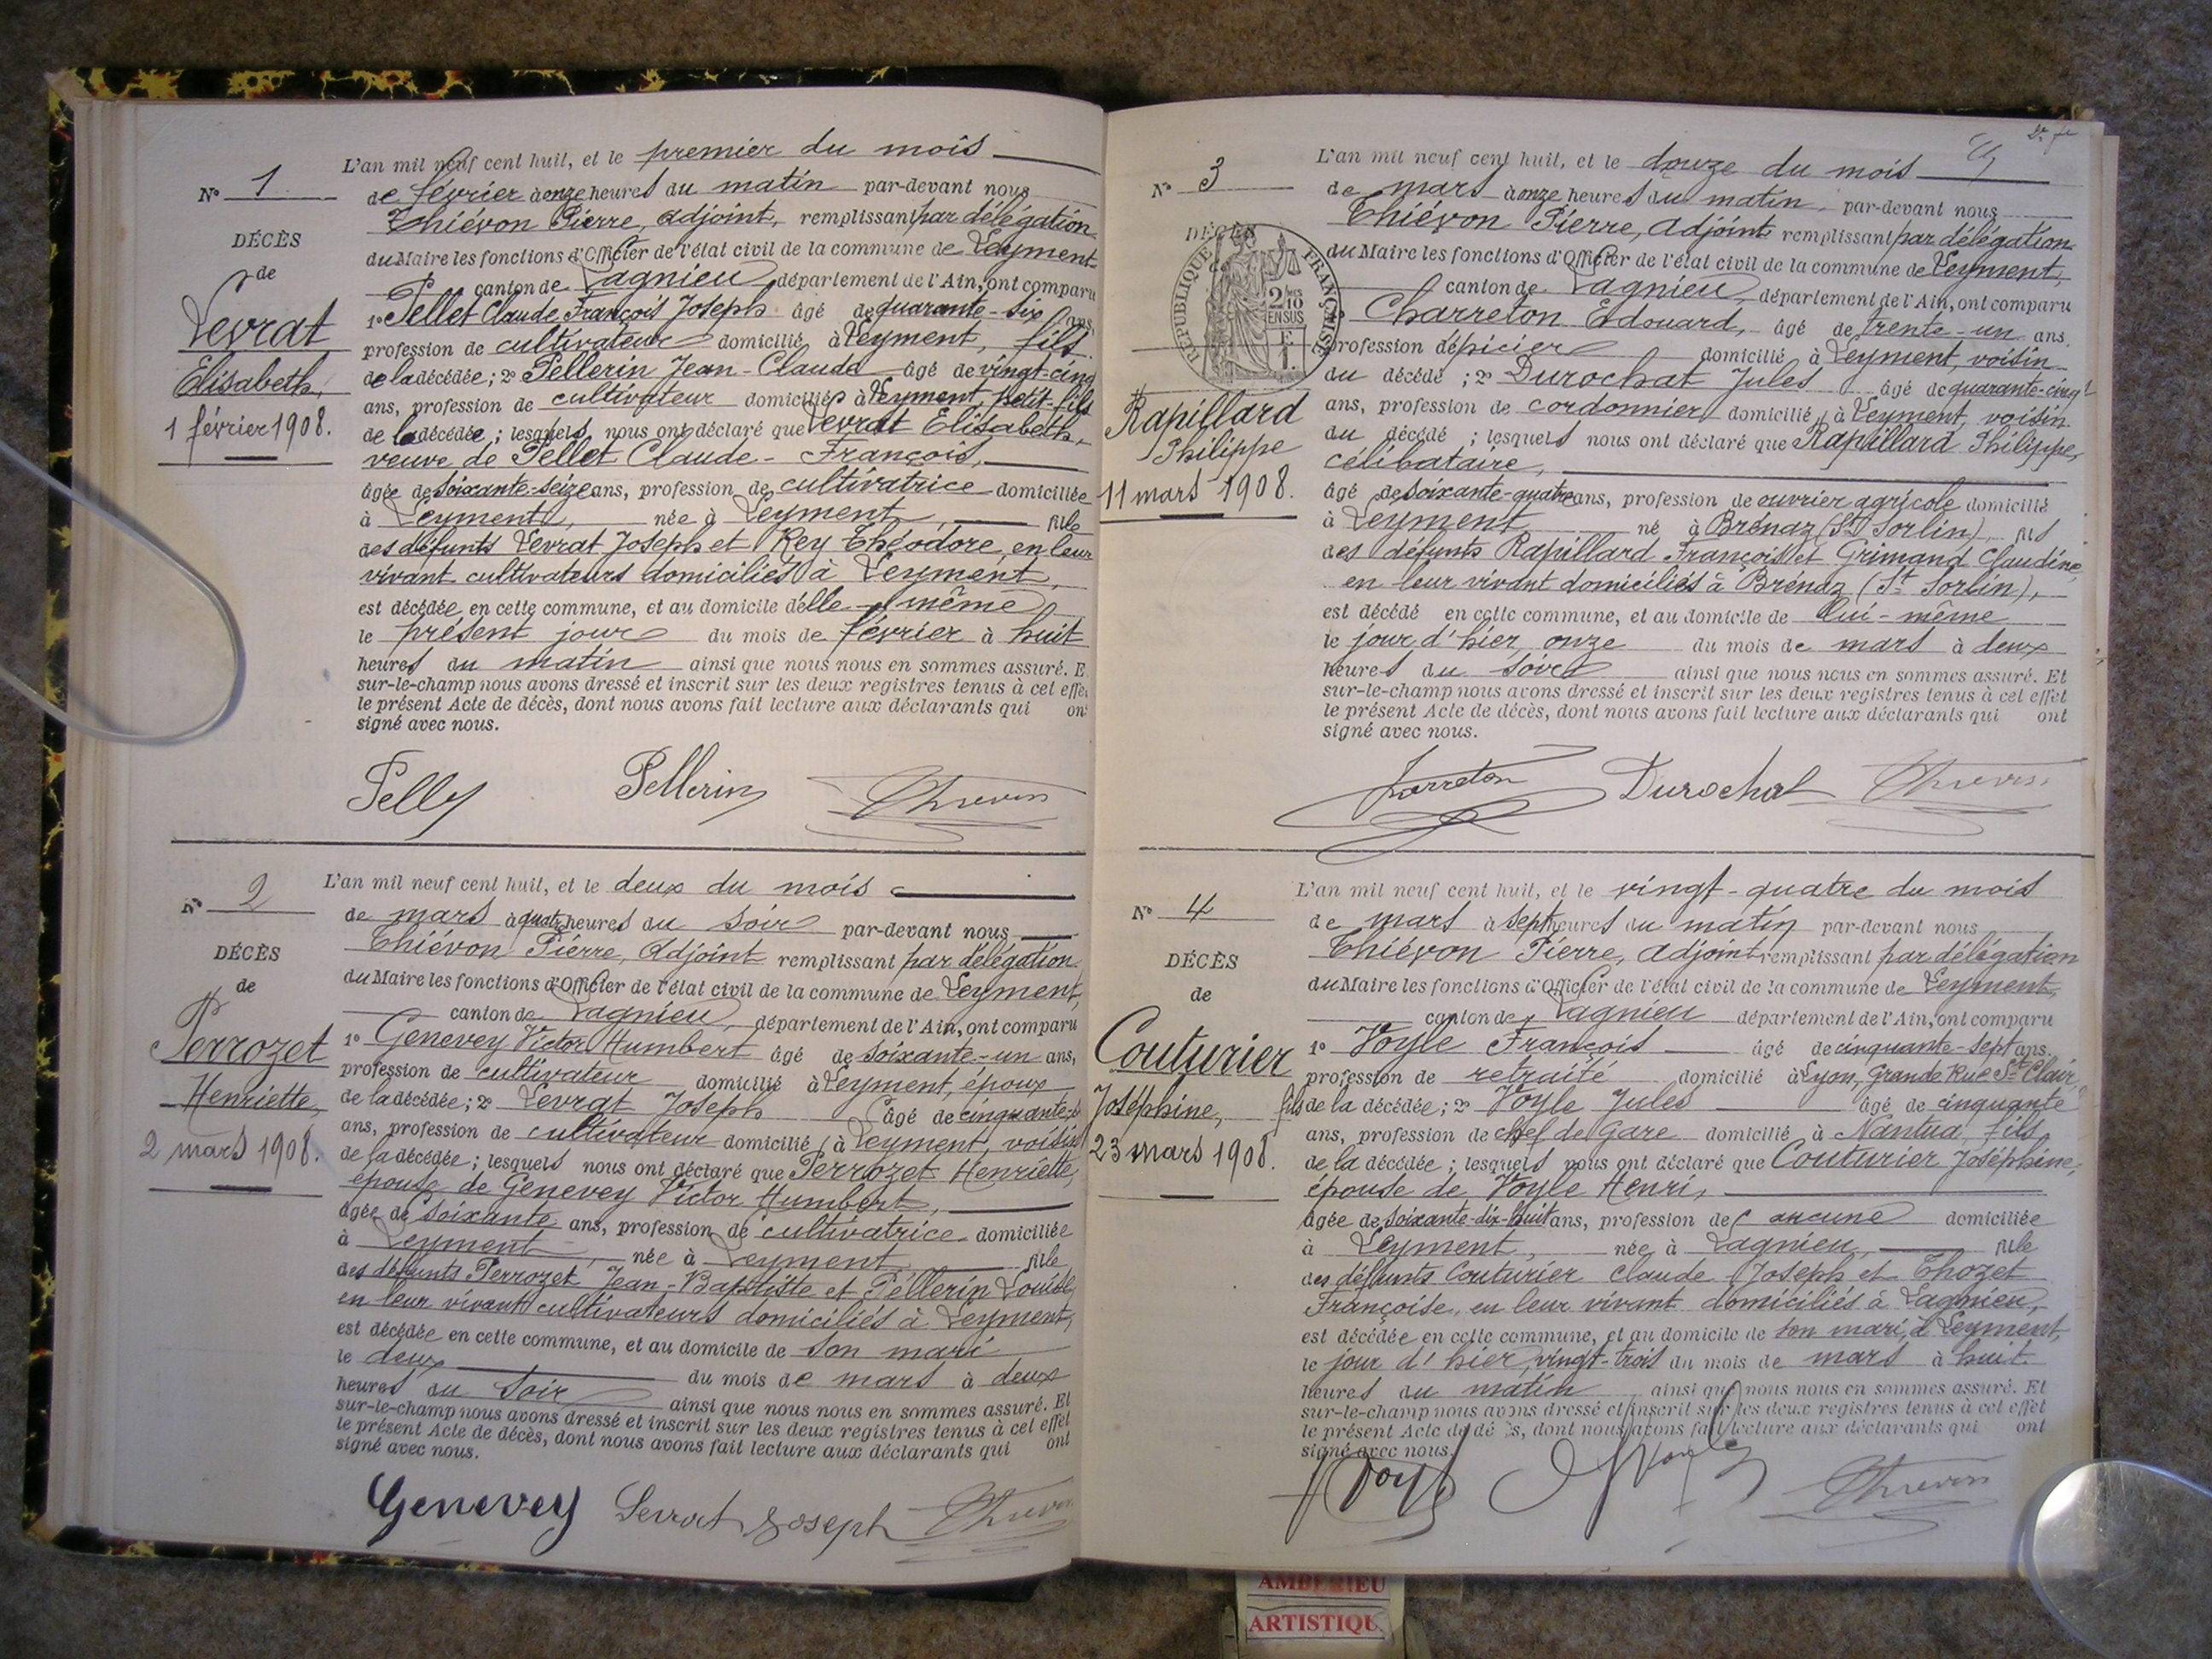 N° 1
DÉCÈS
de
Levrat
Elisabeth,
1 février 1908.
L'an mil neuf cent huit, et le premier du mois
de février à onze heures du matin par-devant nous
Thiévon Pierre, adjoint, remplissant par délégation
du Maire les fonctions d'Officier de l'état civil de la commune de Leyment
canton de Lagnieu département de l'Ain, ont comparu
1° Pellet Claude François Joseph âgé de quarante-six ans,
profession de cultivateur domicilié à Leyment, fils
de la décédée ; 2° Pellerin Jean-Claude âgé de vingt-cinq
ans, profession de cultivateur domiciliés à Leyment, petit-fils
de la décédée ; lesquels nous ont déclaré que Levrat Elisabeth,
veuve de Pellet Claude-François,
âgée de soixante-seize ans, profession de cultivatrice domiciliée
à Leyment, née à Leyment, fille
des défunts Levrat Joseph et Rey Théodore, en leur
vivant cultivateurs domiciliés à Leyment,
est décédée en cette commune, et au domicile d'elle-même
le présent jour du mois de février à huit
heures du matin ainsi que nous nous en sommes assuré. E
sur-le-champ nous avons dressé et inscrit sur les deux registres tenus à cet effe
le présent Acte de décès, dont nous avons fait lecture aux déclarants qui on
signé avec nous.
Pellerin
N° 2
DÉCÈS
de
Perrozet
Henriette,
2 mars 1908.
L'an mil neuf cent huit, et le deux du mois
de mars à quatre heures du soir par-devant nous
Thiévon Pierre, Adjoint remplissant par délégation
du Maire les fonctions d'Officier de l'état civil de la commune de Leyment,
canton de Lagnieu, département de l'Ain, ont comparu
1° Genevey Victor Humbert âgé de soixante-un ans,
profession de cultivateur domicilié à Leyment, époux
de la décédée ; 2° Levrat Joseph âgé de cinquante
ans, profession de cultivateur domicilié à Leyment, voisin
de la décédée ; lesquels nous ont déclaré que Perrozet Henriette,
épouse de Genevey Victor Humbert,
âgée de soixante ans, profession de cultivatrice domiciliée
à Leyment, née à Leyment, fille
des défunts Perrozet Jean-Baptiste et Pellerin Louise,
en leur vivant cultivateurs domiciliés à Leyment,
est décédée en cette commune, et au domicile de son mari
le deux du mois de mars à deux
heures du soir ainsi que nous nous en sommes assuré. Et
sur-le-champ nous avons dressé et inscrit sur les deux registres tenus à cet effet
le présent Acte de décès, dont nous avons fait lecture aux déclarants qui ont
signé avec nous.
Genevey Levrat Joseph
N° 3
DÉCÈS
RÉPUBLIQUE FRANÇAISE
2/10 EN SUS
Rapillard
Philippe
11 mars 1908.
L'an mil neuf cent huit, et le douze du mois
de mars à onze heures du matin par-devant nous
Thiévon Pierre, Adjoint remplissant par délégation
du Maire les fonctions d'Officier de l'état civil de la commune de Leyment,
canton de Lagnieu, département de l'Ain, ont comparu
Charreton Edouard, âgé de trente-un ans,
profession d'épicier domicilié à Leyment, voisin
du décédé ; 2° Durochat Jules âgé de quarante-cinq
ans, profession de cordonnier domicilié à Leyment, voisin
du décédé ; lesquels nous ont déclaré que Rapillard Philippe,
célibataire,
âgé de soixante-quatre ans, profession de ouvrier agricole domicilié
à Leyment, né à Brénaz (St Sorlin), fils
des défunts Rapillard François et Grimand Claudine,
en leur vivant domiciliés à Brénaz (St Sorlin),
est décédé en cette commune, et au domicile de lui-même
le jour d'hier onze du mois de mars à deux
heures du soir ainsi que nous nous en sommes assuré. Et
sur-le-champ nous avons dressé et inscrit sur les deux registres tenus à cet effet
le présent Acte de décès, dont nous avons fait lecture aux déclarants qui ont
signé avec nous.
Durochat
N° 4
DÉCÈS
de
Couturier
Joséphine,
23 mars 1908.
L'an mil neuf cent huit, et le vingt-quatre du mois
de mars à sept heures du matin par-devant nous
Thiévon Pierre, Adjoint remplissant par délégation
du Maire les fonctions d'Officier de l'état civil de la commune de Leyment,
canton de Lagnieu département de l'Ain, ont comparu
1° Voyle François âgé de cinquante-sept ans,
profession de retraité domicilié à Lyon, Grande Rue St Clair,
fils de la décédée ; 2° Voyle Jules âgé de cinquante
ans, profession de chef de Gare domicilié à Nantua, fils
de la décédée ; lesquels nous ont déclaré que Couturier Joséphine,
épouse de Voyle Henri,
âgée de soixante-dix-huit ans, profession de aucune domiciliée
à Leyment, née à Lagnieu, fille
des défunts Couturier Claude Joseph et Thozet
Françoise, en leur vivant domiciliés à Lagnieu,
est décédée en cette commune, et au domicile de son mari, à Leyment,
le jour d'hier, vingt-trois du mois de mars à huit
heures du matin ainsi que nous nous en sommes assuré. Et
sur-le-champ nous avons dressé et inscrit sur les deux registres tenus à cet effet
le présent Acte de décès, dont nous avons fait lecture aux déclarants qui ont
signé avec nous.
AMBERIEU
ARTISTIQU